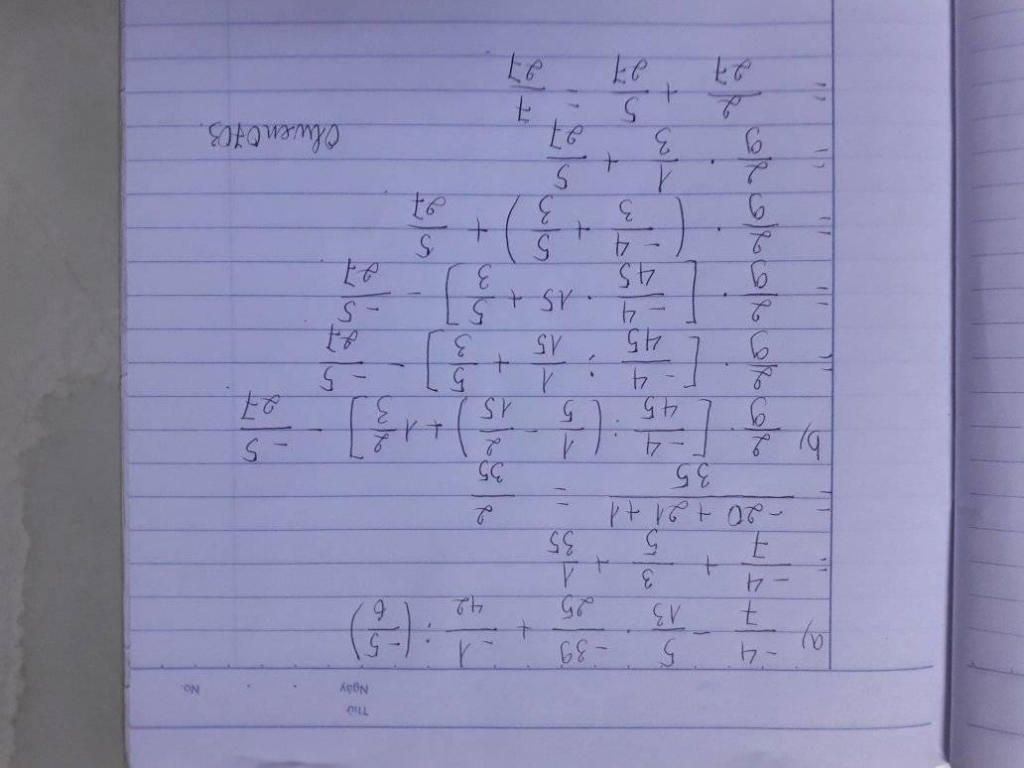 Thứ
Ngày . . No.
a) -4/7 - 5/13 . -39/25 + -1/42 : (-5/6)
= -4/7 + 3/5 + 1/35
= -20 + 21 + 1/35 = 2/35
b) 2/9 . [-4/45 : (1/5 - 2/15) + 1 2/3] - -5/27
= 2/9 . [-4/45 : 1/15 + 5/3] - -5/27
= 2/9 . [-4/45 . 15 + 5/3] - -5/27
= 2/9 . (-4/3 + 5/3) + 5/27
= 2/9 . 1/3 + 5/27
= 2/27 + 5/27 = 7/27